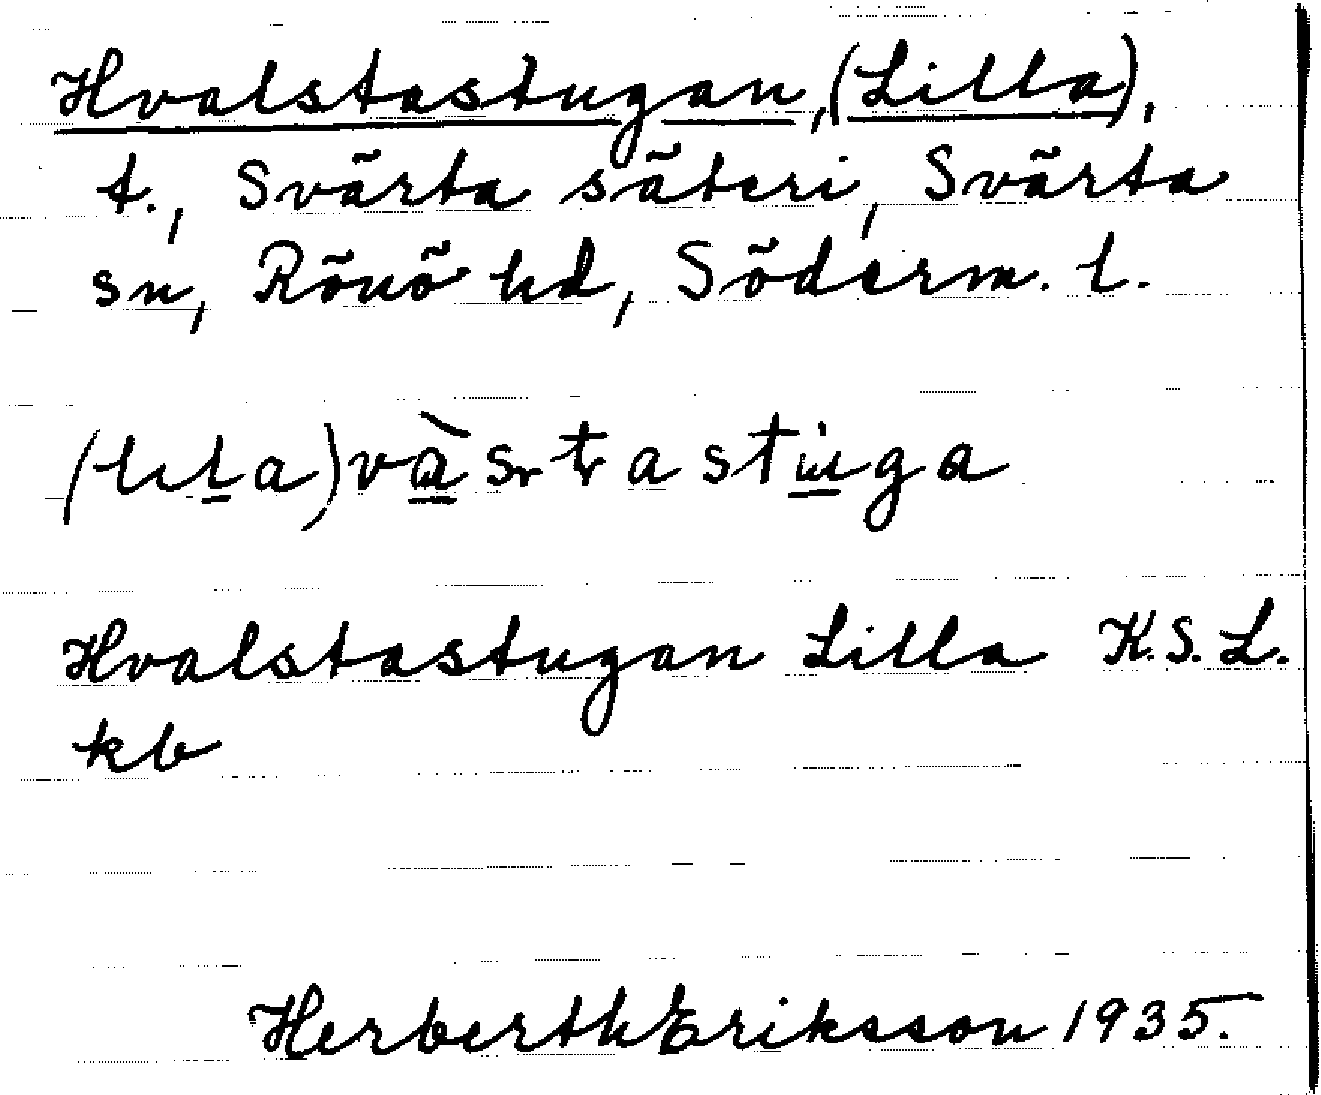 Hvalstastugan, (Lilla),
t., Svärta säteri, Svärta
sn, Rönö hd, Söderm. l.
(lila) vàstastuga
Hvalstastugan Lilla K.S.L.
kb
Herberth Eriksson 1935.